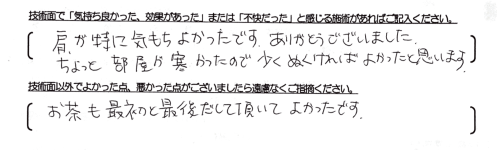 技術面で「気持ち良かった、効果があった」または「不快だった」と感じる施術があればご記入ください。
肩が特に気もちよかったです。ありがとうございました。
ちょっと部屋が寒かったので少しぬくければよかったと思います。
技術面以外でよかった点、悪かった点がございましたら遠慮なくご指摘ください。
お茶も最初と最後だして頂いてよかったです。